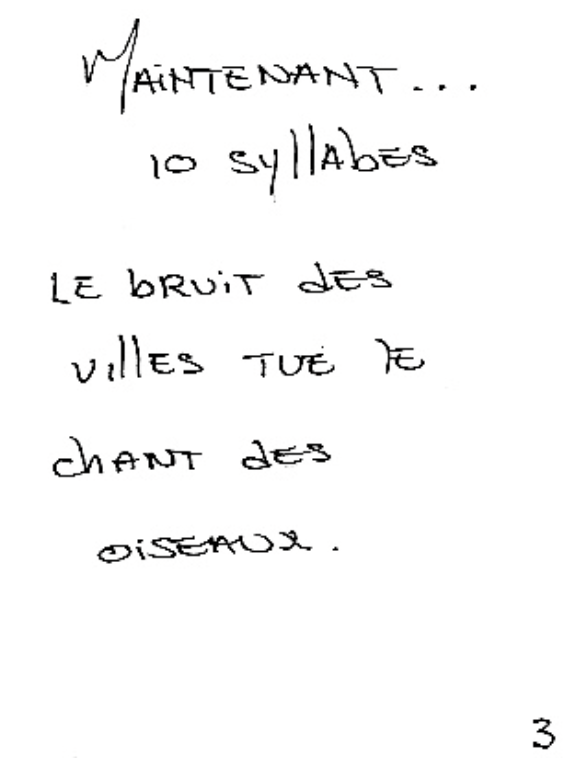 MAiNTENANT...
10 syllAbES
LE bRUiT dES
villES TUE lE
chANT dES
OiSEAUX.
3